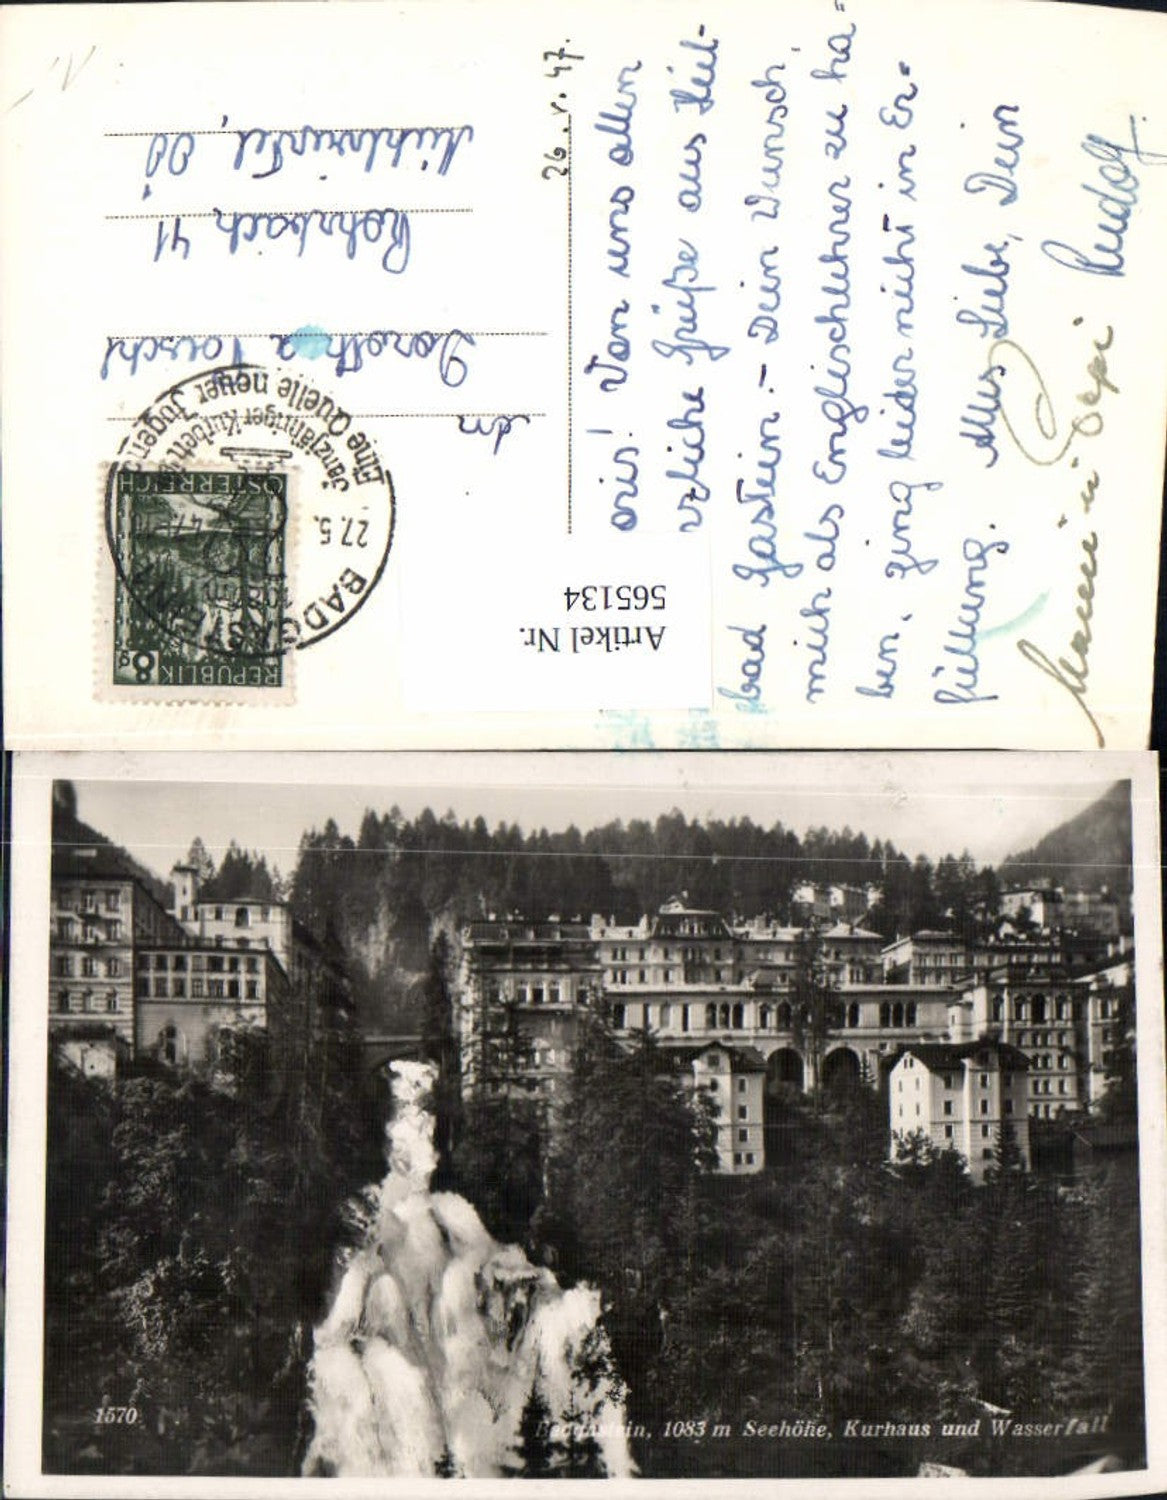 26. V. 47.
Doris! Von uns allen
herzliche Grüße aus Heil-
bad Gastein. - Dein Wunsch,
mich als Englischlehrer zu ha=
ben, ging leider nicht in Er=
füllung. Alles Liebe, Dein
Rudolf.
Mami u. Sepi
An
Dorothea
Rohrbach 41
Mühlviertel, OÖ
REPUBLIK
8 g
ÖSTERREICH
BADGASTEIN
1083 m
27. 5. 47
Ganzjähriger Kurbetrieb
Eine Quelle neuer Jugend
Artikel Nr.
565134
1570
Badgastein, 1083 m Seehöhe, Kurhaus und Wasserfall